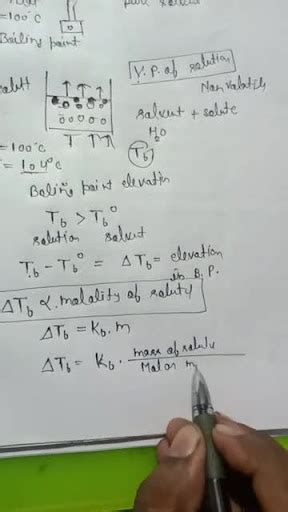 =100°C
Boiling point
V.P. of solution
Non volatile
solvent + solute
H₂O
T_b
=100°C
= 104°C
Boling point elevatin
T_b > T_b°
solution solvent
T_b - T_b° = ΔT_b = elevation
in B.P.
ΔT_b ∝ molality of solute
ΔT_b = K_b . m
ΔT_b = K_b . mass of solute
Molar m